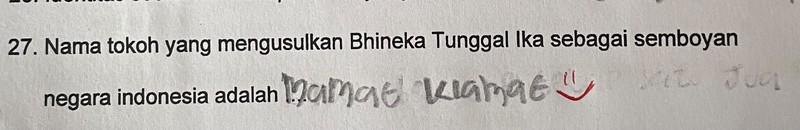 27. Nama tokoh yang mengusulkan Bhineka Tunggal Ika sebagai semboyan
negara indonesia adalah ... mamat kiamat